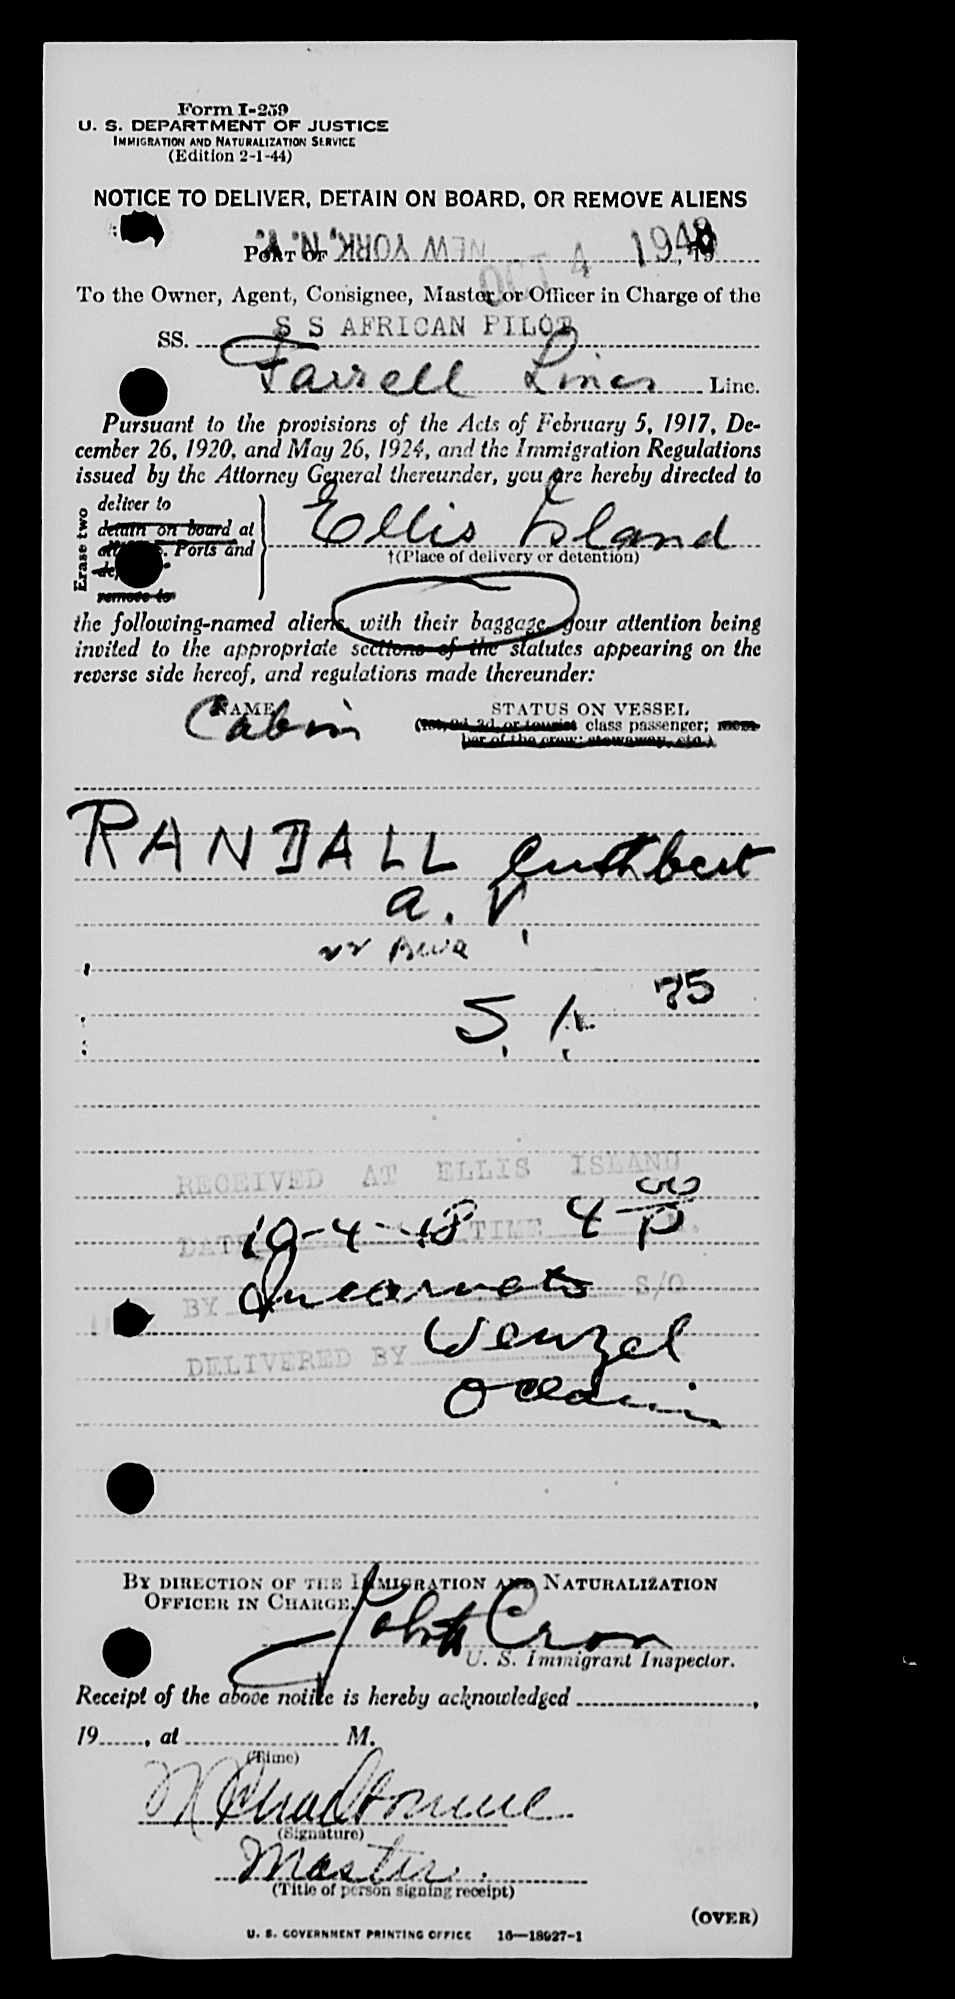 Form I-259
U. S. DEPARTMENT OF JUSTICE
IMMIGRATION AND NATURALIZATION SERVICE
(Edition 2-1-44)
NOTICE TO DELIVER, DETAIN ON BOARD, OR REMOVE ALIENS
PORT OF NEW YORK, N. Y. OCT 4 1948, 19
To the Owner, Agent, Consignee, Master or Officer in Charge of the
SS. S S AFRICAN PILOT
Farrell Lines Line.
Pursuant to the provisions of the Acts of February 5, 1917, De-
cember 26, 1920, and May 26, 1924, and the Immigration Regulations
issued by the Attorney General thereunder, you are hereby directed to
Erase two
deliver to
detain on board at
Ports and
remove to
Ellis Island
†(Place of delivery or detention)
the following-named aliens, with their baggage, your attention being
invited to the appropriate sections of the statutes appearing on the
reverse side hereof, and regulations made thereunder:
NAME STATUS ON VESSEL
Cabin (1st, 2d, 3d, or tourist class passenger; mem-
ber of the crew; stowaway, etc.)
RANDALL Cuthbert
A. V.
S. 75
RECEIVED AT ELLIS ISLAND
DATE 10-4-48 TIME 4 00 P.
BY S/O
DELIVERED BY Wenzel
BY DIRECTION OF THE IMMIGRATION AND NATURALIZATION
OFFICER IN CHARGE.
John Cron
U. S. Immigrant Inspector.
Receipt of the above notice is hereby acknowledged
19, at M.
(Time)
(Signature)
Master
(Title of person signing receipt)
(OVER)
U. S. GOVERNMENT PRINTING OFFICE 16—18927-1